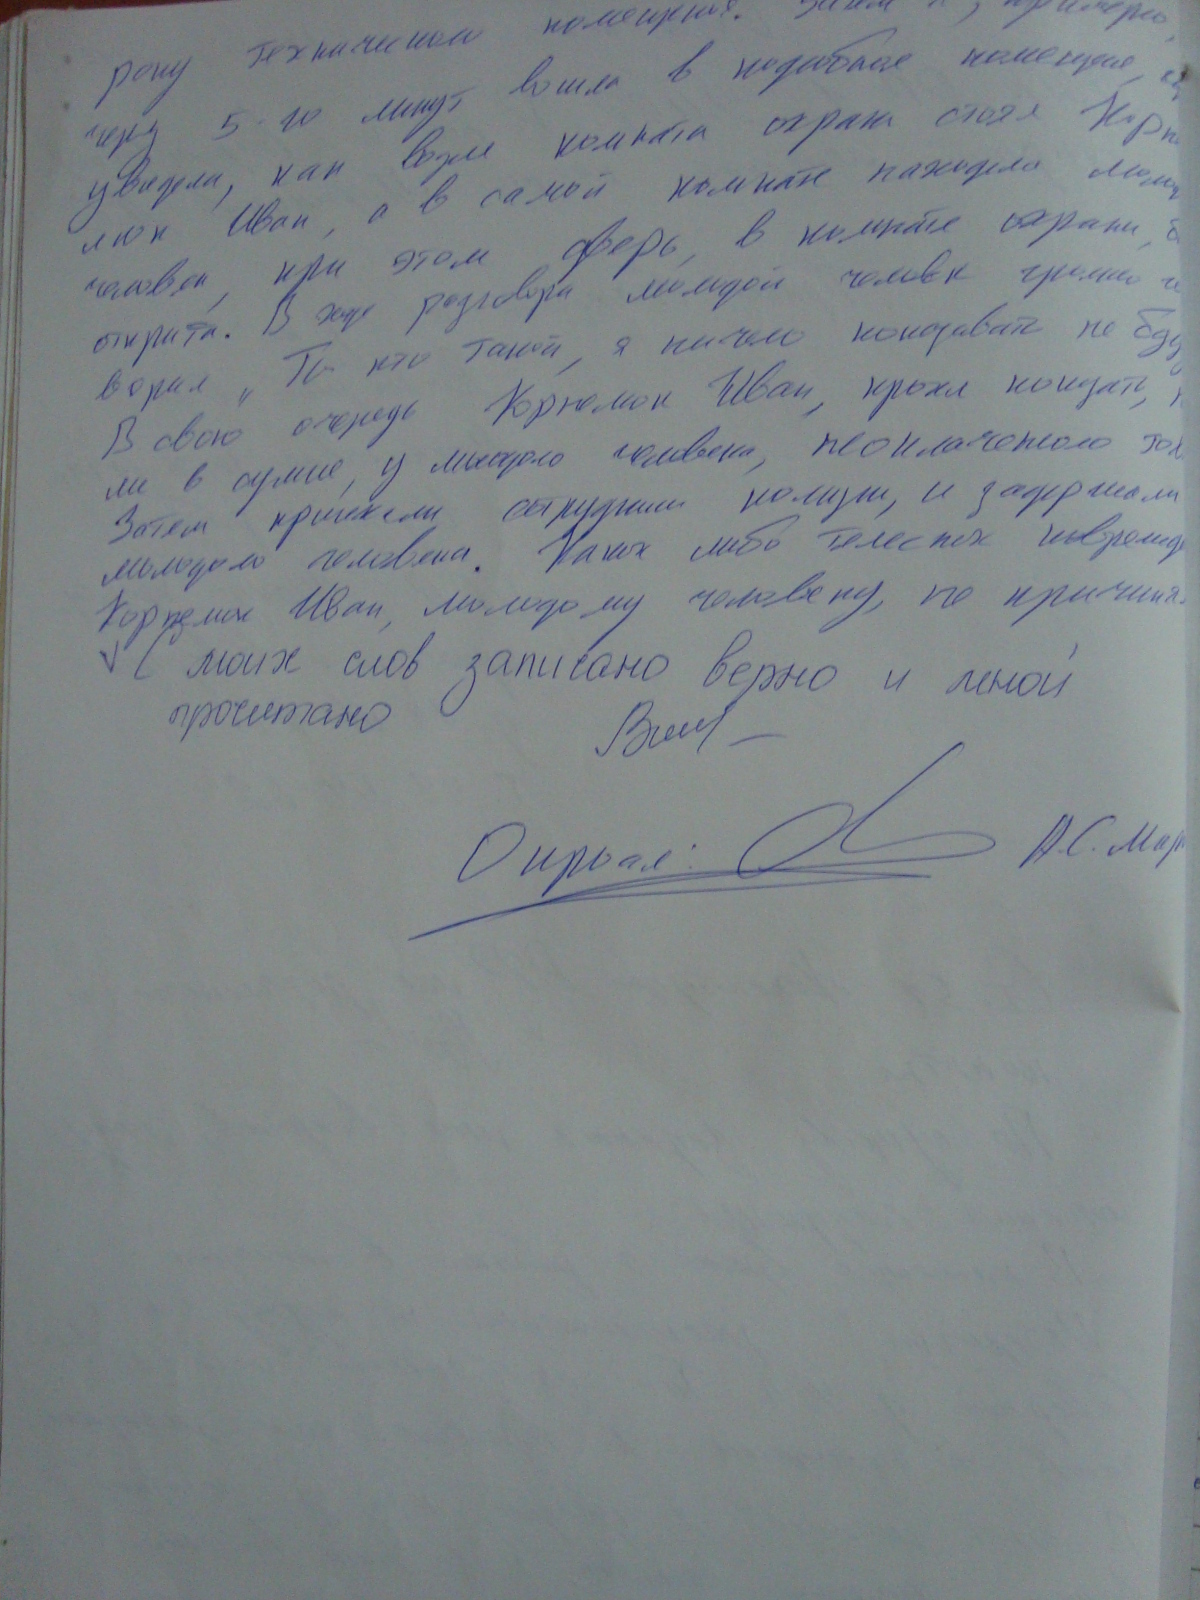 рону технического помещения. Затем я, примерно,
через 5-10 минут вошла в подсобное помещение,
увидела, как возле комнаты охраны стоял Корпе
люк Иван, а в самой комнате находился молод
человек, при этом дверь, в комнате охраны,
открыта. В ходе разговора молодой человек громко го
ворил „Ты кто такой, я ничего показывать не буду
В свою очередь Корпелюк Иван, просил показать,
ли в сумке, у молодого человека, неоплаченного тов
Затем приехали сотрудники полиции, и задержали
молодого человека. Каких либо телесных поврежде
Корпелюк Иван, молодому человеку, не причиня
√ С моих слов записано верно и мной
прочитано
Опросил: А.С. Мар